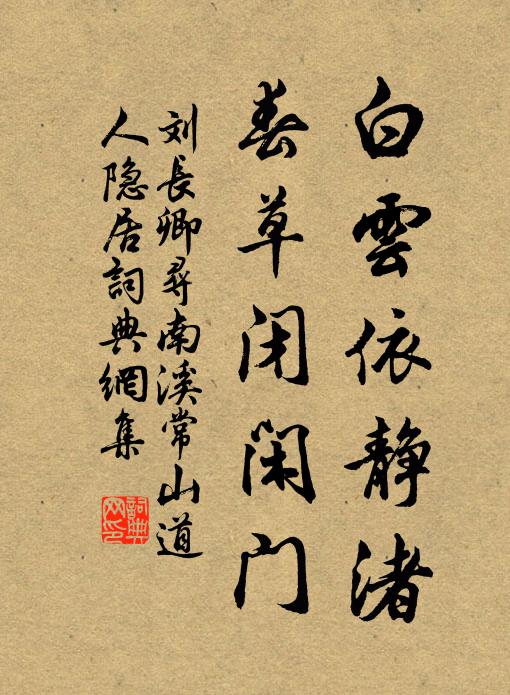 白雲依静渚
春草闭閑门
刘長卿尋南溪常山道
人隐居詞典網集
詞典
网印